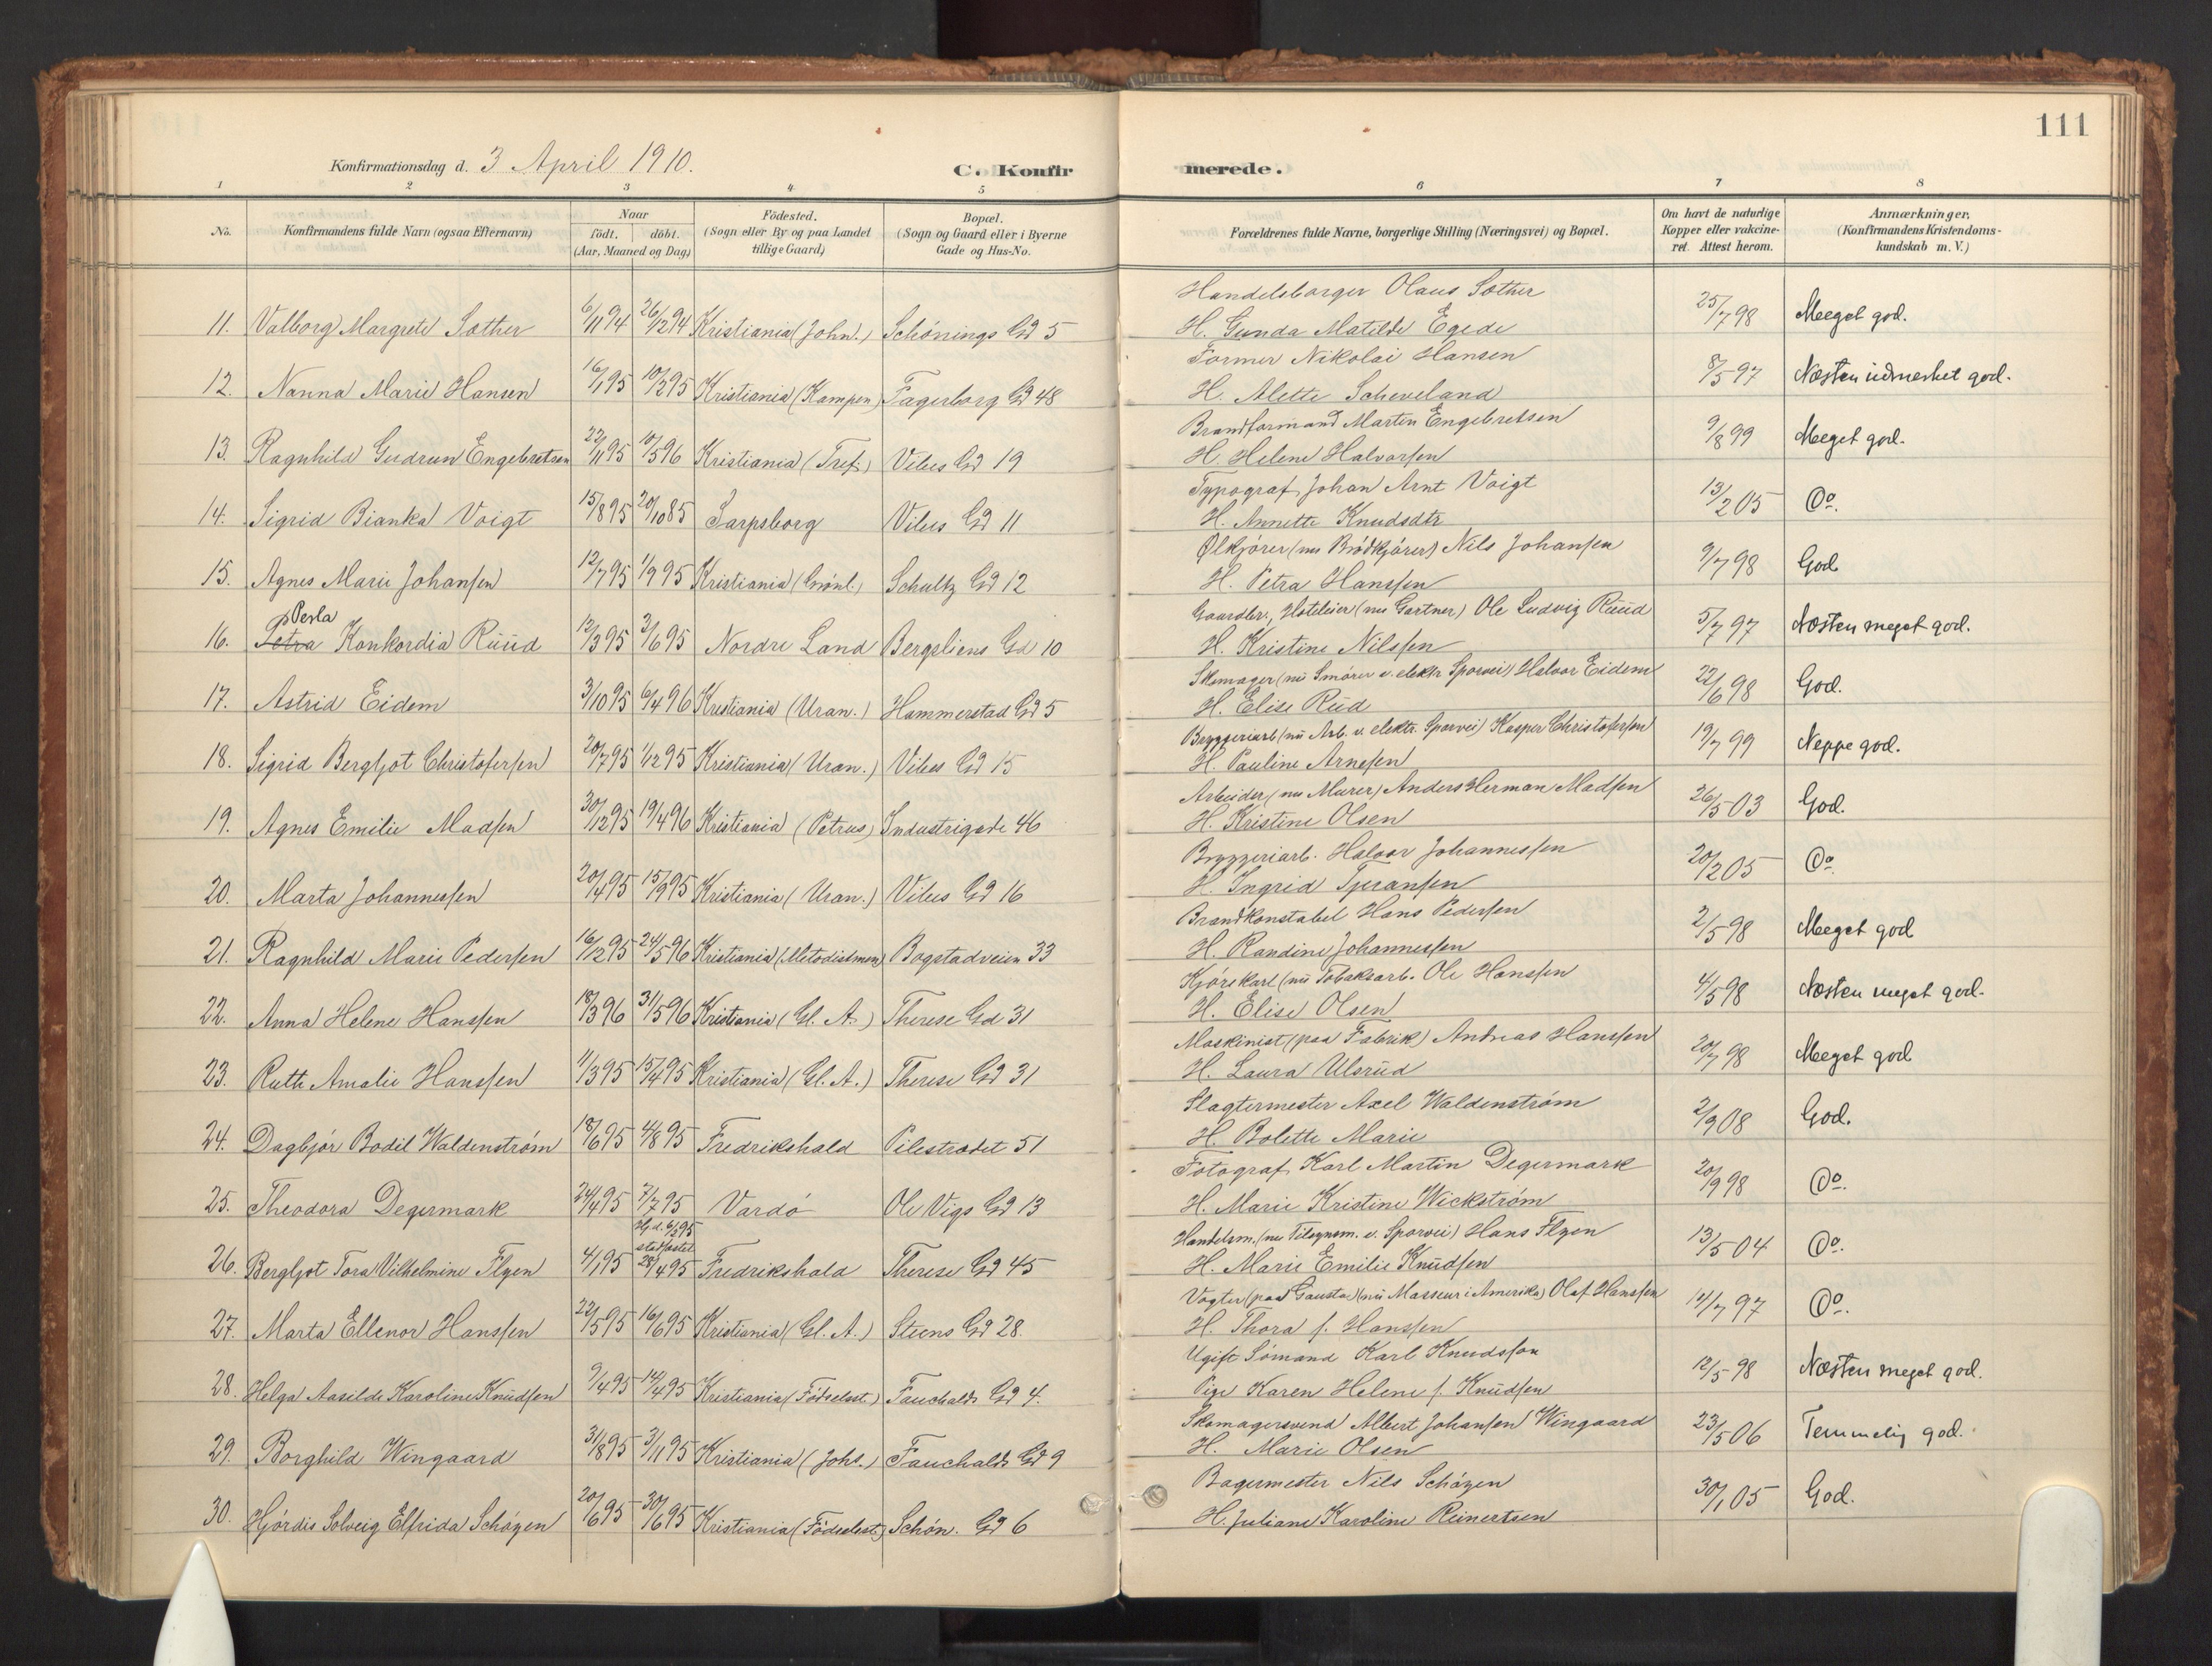 111
Konfirmationsdag d. 3 April 1910.
C. Konfirmerede.
1 2 3 4 5 6 7 8
No. Konfirmandens fulde Navn (ogsaa Efternavn) Naar födt. döbt. (Aar, Maaned og Dag) Födested. (Sogn eller By og paa Landet tillige Gaard) Bopæl. (Sogn og Gaard eller i Byerne Gade og Hus-No. Forældrenes fulde Navne, borgerlige Stilling (Næringsvei) og Bopæl. Om havt de naturlige Kopper eller vakcineret. Attest herom. Anmærkninger. (Konfirmandens Kristendomskundskab m. V.)
Handelsborger Olaus Sæther
11. Valborg Margrete Sæther 6/11 94 26/12 94 Kristiania (John.) Schönings Gd 5 H. Gunda Matilde Egede 25/7 98 Meget god.
Former Nikolai Hansen
12. Nanna Marie Hansen 16/1 95 10/2 95 Kristiania (Kampen) Fagerborg Gd 48 H. Alette Scheveland 8/5 97 Næsten udmerket god.
Brandformand Martin Engebretsen
13. Ragnhild Gudrun Engebretsen 22/11 95 10/5 96 Kristiania (Tref.) Vibes Gd 19 H. Helene Halvorsen 9/8 99 Meget god.
Typograf Johan Arnt Voigt
14. Sigrid Bianka Voigt 15/8 95 20/10 85 Sarpsborg Vibes Gd 11 H. Annette Knudsdtr 13/2 05 Do.
Ølkjörer (nu Brödkjörer) Nils Johansen
15. Agnes Marie Johansen 12/7 95 1/9 95 Kristiania (Grönl.) Schultz Gd 12 H. Petra Hanssen 9/7 98 God
Perla
Gaardbr., Hoteleier (nu Gartner) Ole Ludvig Ruud
16. Petra Konkordia Ruud 12/3 95 3/6 95 Nordre Land Bergsliens Gd 10 H. Kristine Nilssen 5/7 97 Næsten meget god.
Skomager (nu Smörer v. elektr Sporvei) Halvor Eidem
17. Astrid Eidem 3/10 95 6/4 96 Kristiania (Uran.) Hammerstad Gd 5 H. Elise Rud 22/6 98 God.
Bryggeriarb (nu Arb. v. elektr. Sporvei) Kasper Christofersen
18. Sigrid Bergljot Christofersen 20/7 95 1/12 95 Kristiania (Uran.) Vibes Gd 15 H. Pauline Arnesen 19/7 99 Neppe god.
Arbeider (nu Murer) Anders Herman Madsen
19. Agnes Emilie Madsen 30/12 95 19/4 96 Kristiania (Petrus) Industrigade 46 H. Kristine Olsen 26/5 03 God.
Bryggeriarb. Halvor Johannessen
20. Marta Johannessen 20/4 95 15/9 95 Kristiania (Uran.) Vibes Gd 16 H. Ingrid 20/2 05 Do
Brandkonstabel Hans Pedersen
21. Ragnhild Marie Pedersen 16/12 95 24/5 96 Kristiania (Metodistmen) Bogstadveien 33 H. Randine Johannessen 2/5 98 Meget god
Kjörekarl (nu Tobaksarb. Ole Hanssen
22. Anna Helene Hanssen 18/3 96 31/5 96 Kristiania (Gl. A.) Therese Gd 31 H. Elise Olsen 4/5 98 Næsten meget god.
Maskinist (paa Fabrik) Andreas Hanssen
23. Ruth Amalie Hanssen 1/3 95 15/4 95 Kristiania (Gl. A.) Therese Gd 31 H. Laura Ulsrud 20/7 98 Meget god
Slagtermester Axel Waldenström
24. Dagbjör Bodil Waldenström 18/6 95 4/8 95 Fredrikshald Pilestrædet 51 H. Bolette Marie 2/9 08 God.
Fotograf Karl Martin Degermark
25. Theodora Degermark 24/4 95 7/7 95 Vardö Ole Vigs Gd 13 H. Marie Kristine Wickström 20/9 98 Do.
Hj. d. 6/2 95 stadfæstet
Handelsm. (nu Tilsynsm. v. Sporvei) Hans Flyen
26. Bergljot Tora Vilhelmine Flyen 4/1 95 28/4 95 Fredrikshald Therese Gd 45 H. Marie Emilie Knudsen 13/5 04 Do.
Vogter (paa Gaustad) (nu Masseur i Amerika) Olaf Hanssen
27. Marta Ellenor Hanssen 22/5 95 16/6 95 Kristiania (Gl. A.) Steens Gd 28. H. Thora f. Hanssen 14/7 97 Do.
Ugift Sömand Karl Knudsson
28. Helga Aasilde Karoline Knudsen 9/4 95 14/4 95 Kristiania (Födselsst.) Fauchalds Gd 4. Pige Karen Helene f. Knudsen 12/5 98 Næsten meget god.
Skomagersvend Albert Johansen Wingaard
29. Borghild Wingaard 31/8 95 3/11 95 Kristiania (Johs.) Fauchalds Gd 9 H. Marie Olsen 23/5 06 Temmelig god.
Bagermester Nils Schöyen
30. Hjördis Solveig Elfrida Schöyen 20/6 95 30/6 95 Kristiania (Födselsst.) Schön. Gd 6 H. Juliane Karoline Reinertsen 30/1 05 God.